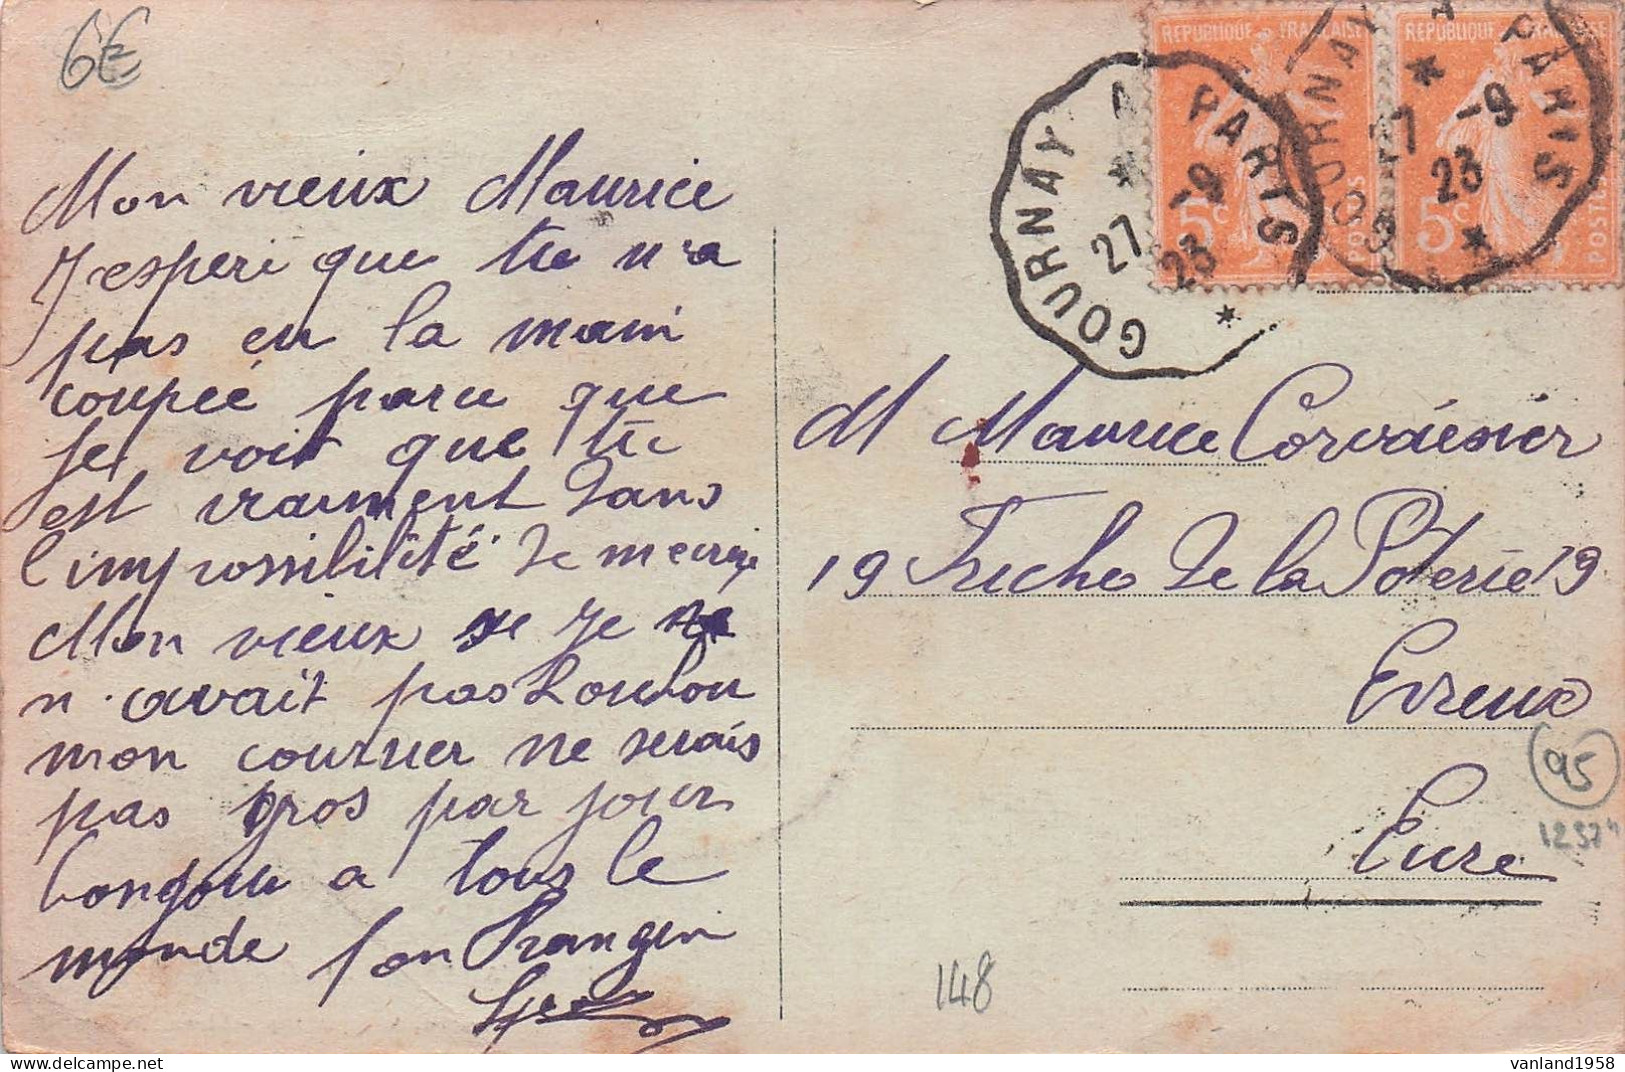 6€
Mon vieux Maurice
J'esperè que tu n'a
pas eu la main
coupée parce que
je voit que tu
est vraiment dans
l'impossibilité de
Mon vieux se je
n'avait pas
mon courrier ne serais
pas gros par jour
bonjour a tous le
monde ton Frangin
RÉPUBLIQUE FRANÇAISE
5c
POSTES
GOURNAY A PARIS
27 -9
23
RÉPUBLIQUE FRANÇAISE
5c
POSTES
GOURNAY A PARIS
27 -9
23
M Maurice Corvaisier
19 Friche de la Poterie 19
Evreux
Eure
95
148
vanland1958